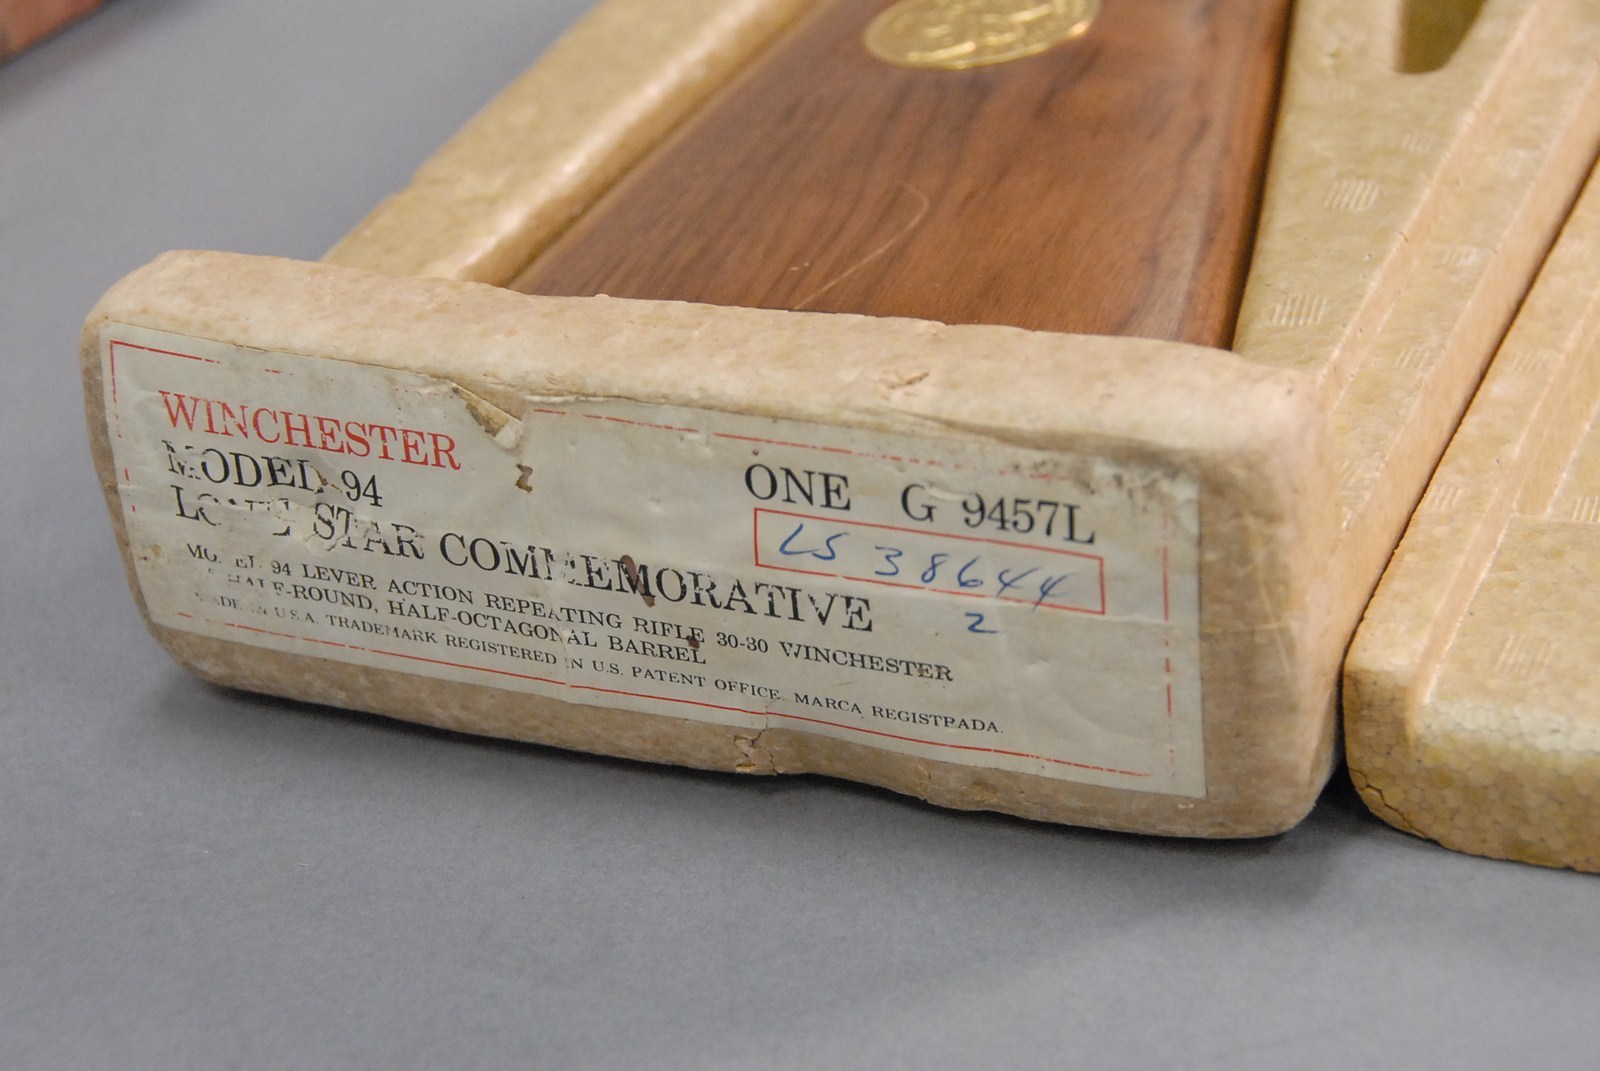 WINCHESTER
MODEL 94
LONE STAR COMMEMORATIVE
MODEL 94 LEVER ACTION REPEATING RIFLE 30-30 WINCHESTER
HALF-ROUND, HALF-OCTAGONAL BARREL
MADE IN U.S.A. TRADEMARK REGISTERED IN U.S. PATENT OFFICE. MARCA REGISTRADA.
ONE G 9457L
LS 38644
2